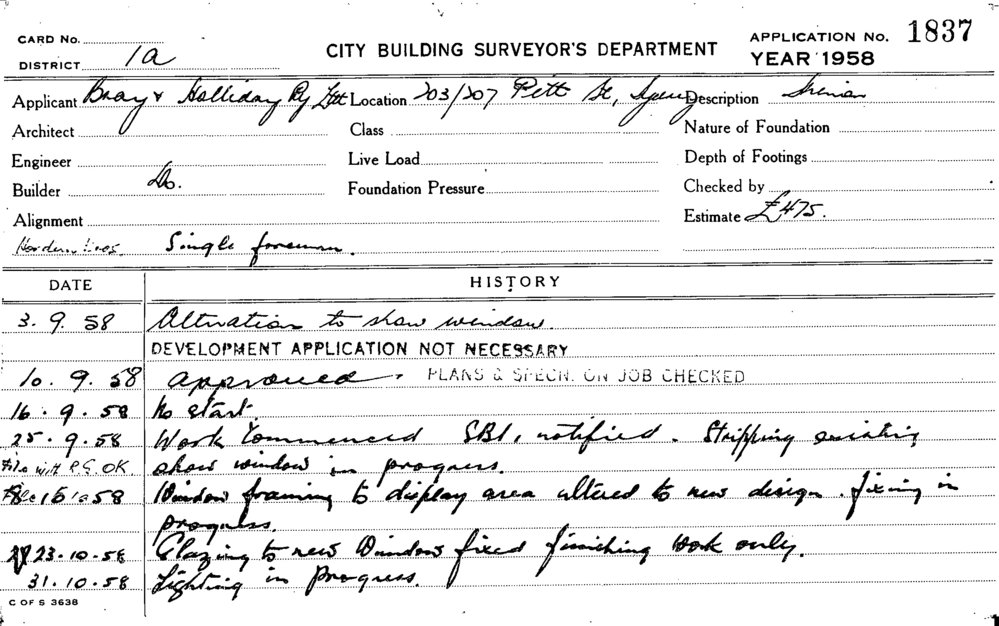 CARD No.
DISTRICT 1a
CITY BUILDING SURVEYOR'S DEPARTMENT
APPLICATION No. 1837
YEAR 1958
Applicant Bray & Holliday Pty Ltd Location 203/207 Pitt St, Sydney Description
Architect Class Nature of Foundation
Engineer Live Load Depth of Footings
Builder Do. Foundation Pressure Checked by
Alignment Estimate £475.
Single foreman.
DATE HISTORY
3. 9. 58 Alteration to show window.
DEVELOPMENT APPLICATION NOT NECESSARY
10. 9. 58 approved. PLANS & SPECN. ON JOB CHECKED
16. 9. 58 No start.
25. 9. 58 Work commenced SBI, notified. Stripping existing
File with P.S. OK show window in progress.
58 Window framing to display area altered to new design. fixing in
progress.
23.10.58 Glazing to new Windows fixed finishing work only.
31.10.58 Lighting in progress.
C OF S 3638